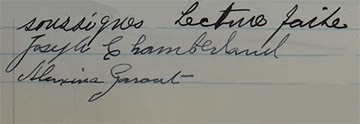 soussignés Lecture faite
Joseph E Chamberland
Alexina Garant